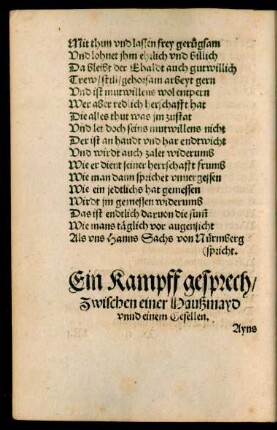 Mit thun vnd lassen frey gerůgsam
Vnd lohnet jhm ehlich vnd billich
Da bleibt der Ehaldt auch gutwillich
Trew/still/gehorsam arbeyt gern
Vnd ist mutwillens wol entpern
Wer aber redlich herschafft hat
Die alles thut was jm zustat
Vnd let doch seins mutwillens nicht
Der ist an haudt vnd har endtwicht
Vnd wirdt auch zalet widerumb
Wie er dient seiner herrschafft frumb
Wie man dann sprichet vnuergessen
Wie ein jedtlichs hat gemessen
Wirdt jm gemessen widerumb
Das ist endtlich daruon die sum
Wie mans täglich vor augensicht
Als vns Hanns Sachs von Nürmberg
spricht.
Ein Kampff gesprech/
Zwischen einer Haußmayd
vnnd einem Gesellen.
Ayns